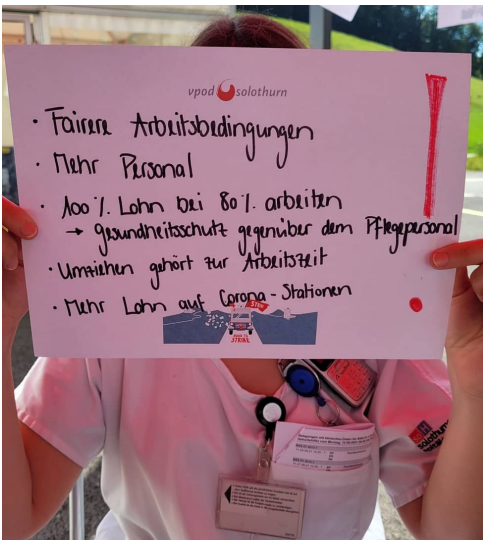 vpod solothurn
· Fairere Arbeitsbedingungen
· Mehr Personal
· 100 % Lohn bei 80 % arbeiten
→ gesundheitsschutz gegenüber dem Pflegepersonal
· Umziehen gehört zur Arbeitszeit
· Mehr Lohn auf Corona-Stationen
!
STRIKE
solothurn